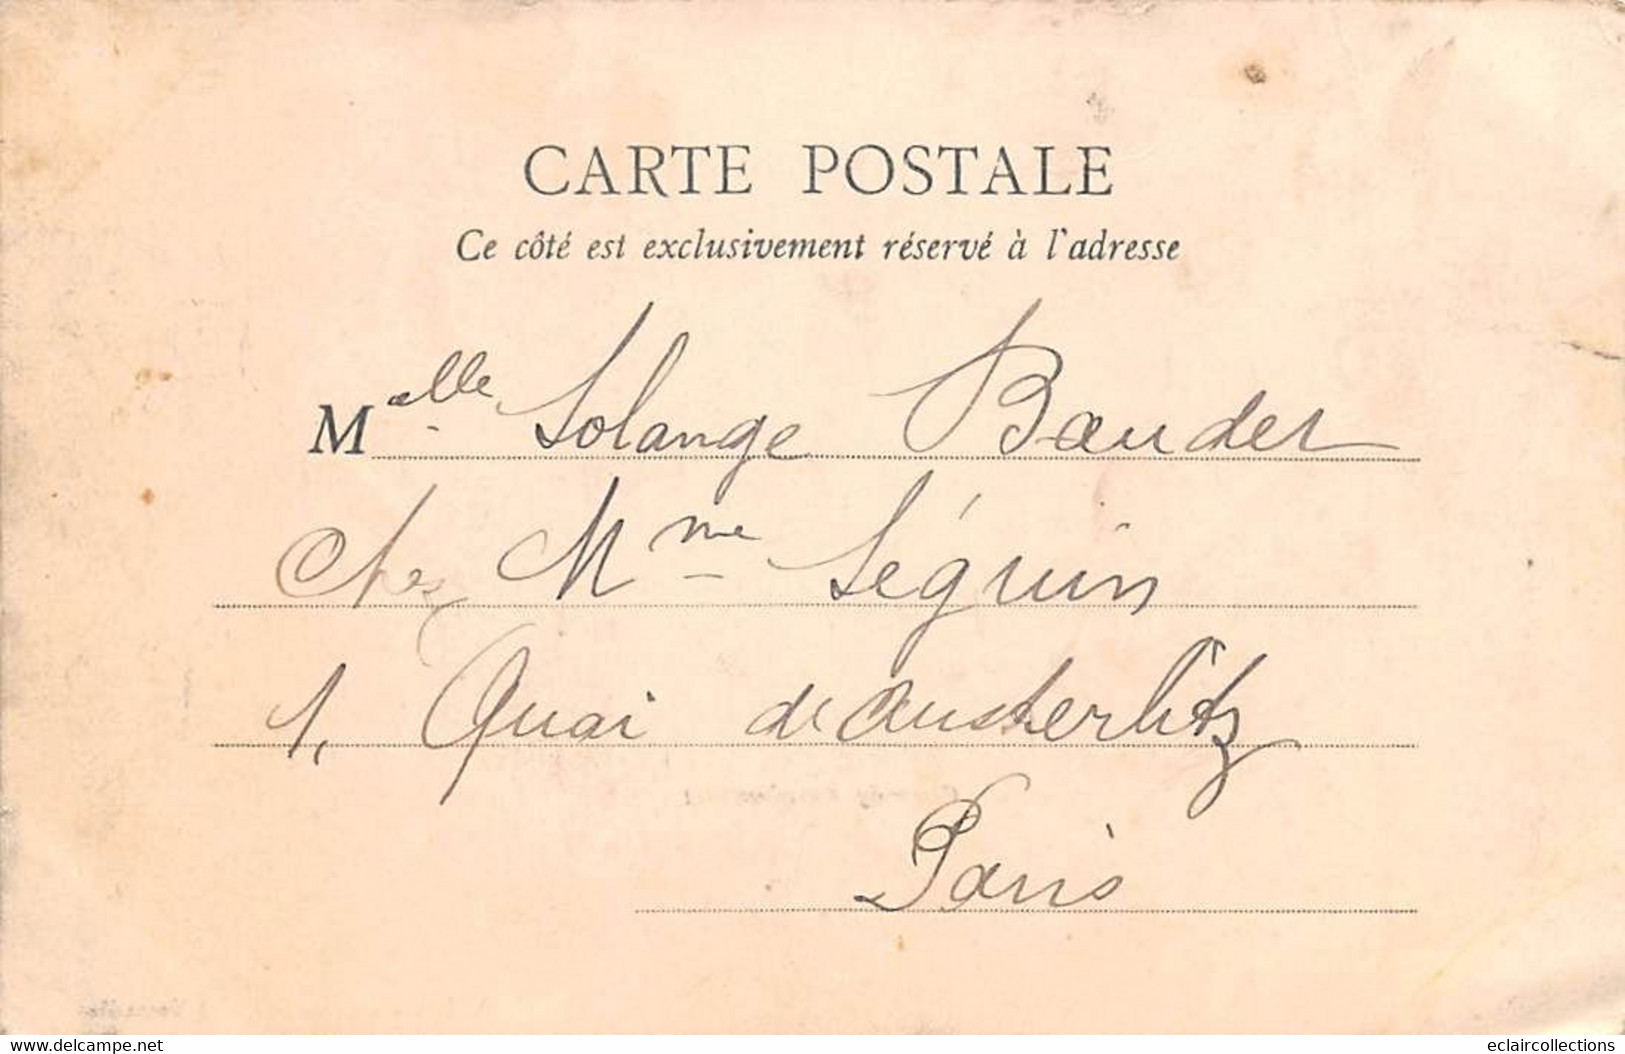 CARTE POSTALE
Ce côté est exclusivement réservé à l'adresse
Melle Solange Baudet
chez Mme Séguin
1, Quai d'Austerlitz
Paris
www.delcampe.net
eclaircollections